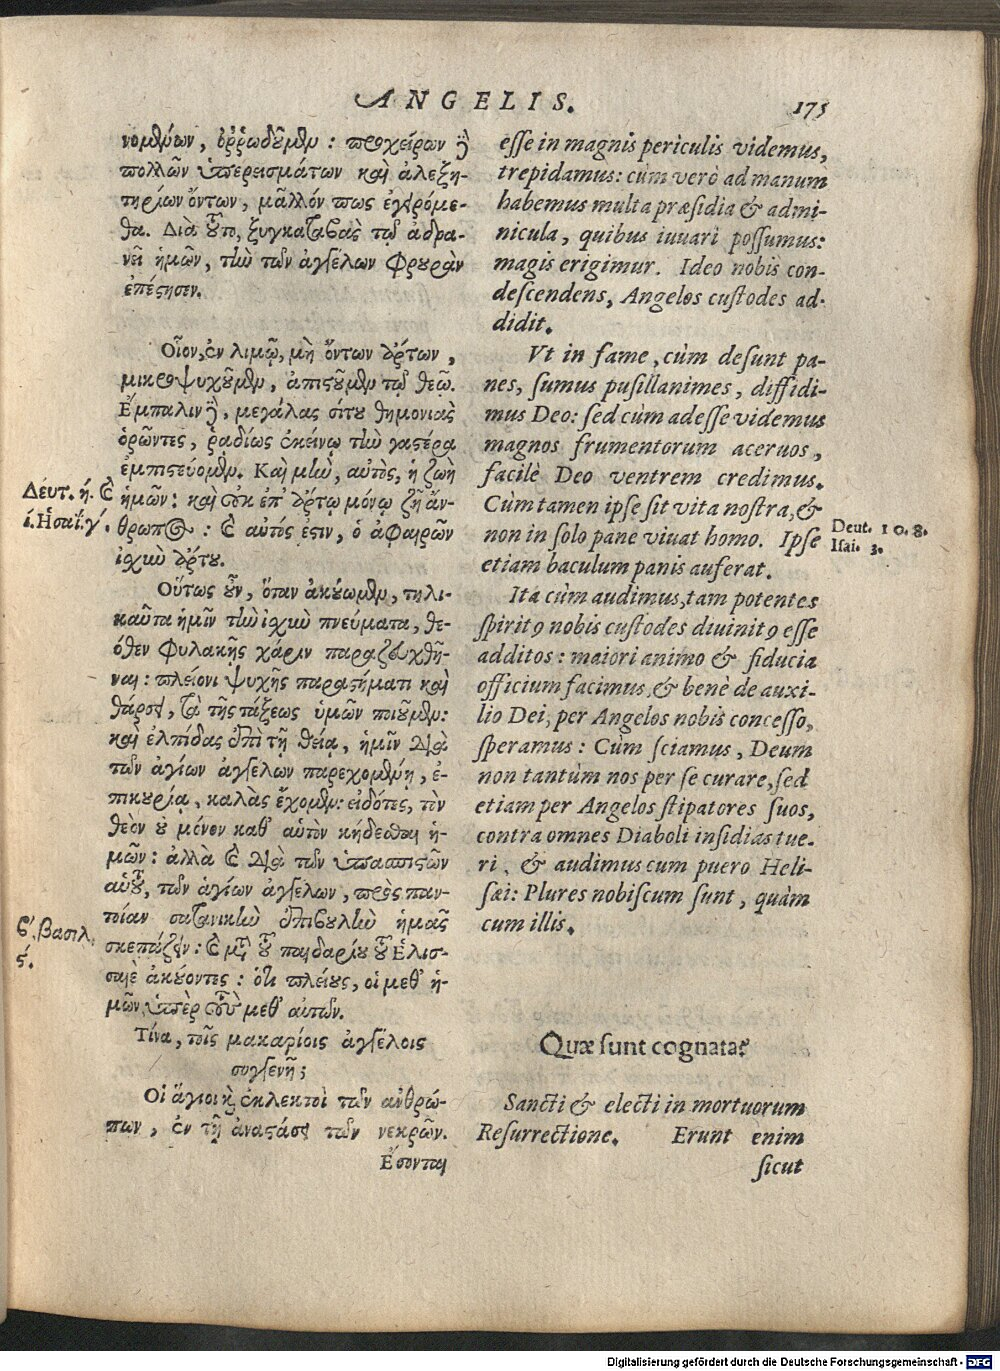 ANGELIS. 175
νομένων, ὀῤῥωδοῦμεν: προχείρων ἢ
πολλῶν ὑπερεισμάτων καὶ ἀλεξη-
τηρίων ὄντων, μᾶλλόν πως ἐγειρόμε-
θα. Διὰ τοῦτο, ξυγκαταβὰς τῷ ἀδρα-
νεῖ ἡμῶν, τὴν τῶν ἀγγέλων φρουρὰν
ἐπέστησεν.
Οἷον, ἐν λιμῷ, μὴ ὄντων ἄρτων,
μικροψυχοῦμεν, ἀπιστοῦμεν τῷ θεῷ.
Ἔμπαλιν δὲ, μεγάλας σίτου θημονιὰς
ὁρῶντες, ῥαδίως ἐκείνῳ τὴν γαστέρα
ἐμπιστεύομεν. Καὶ μὴν, αὐτὸς, ἡ ζωὴ
ἡμῶν: καὶ οὐκ ἐπ' ἄρτῳ μόνῳ ζῇ ἄν-
θρωπος: καὶ αὐτός ἐστιν, ὁ ἀφαιρῶν
ἰσχὺν ἄρτου.
Οὕτως οὖν, ὅταν ἀκούωμεν, τηλι-
καῦτα ἡμῖν τὴν ἰσχὺν πνεύματα, θε-
όθεν φυλακῆς χάριν παραζευχθῆ-
ναι: πλείονι ψυχῆς παραστήματι καὶ
θάρσει, τὰ τῆς τάξεως ὑμῶν ποιοῦμεν:
καὶ ἐλπίδας ἐπὶ τῇ θείᾳ, ἡμῖν διὰ
τῶν ἁγίων ἀγγέλων παρεχομένῃ, ἐ-
πικουρίᾳ, καλὰς ἔχομεν: εἰδότες, τὸν
θεὸν οὐ μόνον καθ' αὑτὸν κήδεσθαι ἡ-
μῶν: ἀλλὰ καὶ διὰ τῶν ὑπασπιστῶν
αὐτοῦ, τῶν ἁγίων ἀγγέλων, πρὸς παν-
τοίαν σατανικὴν ἐπιβουλὴν ἡμᾶς
σκεπάζειν: καὶ μετὰ τοῦ παιδαρίου τοῦ Ἑλισ-
σαιὲ ἀκούοντες: ὅτι πλείους, οἱ μεθ' ἡ-
μῶν, ὑπὲρ τοὺς μεθ' αὐτῶν.
Τίνα, τοῖς μακαρίοις ἀγγέλοις
συγγενῆ;
Οἱ ἅγιοι καὶ ἐκλεκτοὶ τῶν ἀνθρώ-
πων, ἐν τῇ ἀναστάσει τῶν νεκρῶν.
Ἔσονται
Δέυτ. ή. καὶ
ί. Ἡσαΐ. γ΄.
βασιλ.
ϛ΄.
esse in magnis periculis videmus,
trepidamus: cùm verò ad manum
habemus multa præsidia & admi-
nicula, quibus iuuari possumus:
magis erigimur. Ideo nobis con-
descendens, Angelos custodes ad-
didit.
Vt in fame, cùm desunt pa-
nes, sumus pusillanimes, diffidi-
mus Deo: sed cùm adesse videmus
magnos frumentorum aceruos,
facilè Deo ventrem credimus.
Cùm tamen ipse sit vita nostra, &
non in solo pane viuat homo. Ipse
etiam baculum panis auferat.
Ita cùm audimus, tam potentes
spiritꝰ nobis custodes diuinitꝰ esse
additos: maiori animo & fiducia
officium facimus, & benè de auxi-
lio Dei, per Angelos nobis concesso,
speramus: Cùm sciamus, Deum
non tantùm nos per se curare, sed
etiam per Angelos stipatores suos,
contra omnes Diaboli insidias tue-
ri, & audimus cum puero Heli-
sæi: Plures nobiscum sunt, quàm
cum illis.
Quæ sunt cognata?
Sancti & electi in mortuorum
Resurrectione. Erunt enim
sicut
Deut. 10. 8.
Isai. 3.
Digitalisierung gefördert durch die Deutsche Forschungsgemeinschaft - DFG